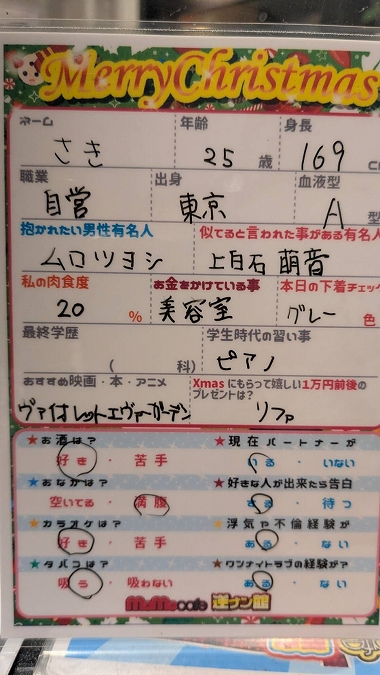 Merry Christmas
ネーム 年齢 身長
さき 25 歳 169 c
職業 出身 血液型
自営 東京 A 型
抱かれたい男性有名人 似てると言われた事がある有名人
ムロツヨシ 上白石萌音
私の肉食度 お金をかけている事 本日の下着チェック
20 % 美容室 グレー 色
最終学歴 学生時代の習い事
( 科) ピアノ
おすすめ映画・本・アニメ Xmasにもらって嬉しい1万円前後の
プレゼントは?
ヴァイオレットエヴァーガーデン リファ
★お酒は? ★現在パートナーが
好き・苦手 いる・いない
★おなかは? ★好きな人が出来たら告白
空いてる・満腹 する・待つ
★カラオケは? ★浮気や不倫経験が
好き・苦手 ある・ない
★タバコは? ★ワンナイトラブの経験が?
吸う・吸わない ある・ない
MoMo cafe 逆ナン館